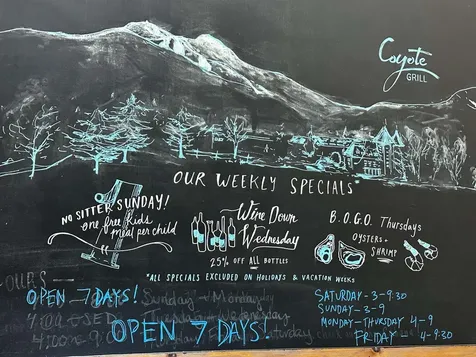 Coyote
GRILL
OUR WEEKLY SPECIALS*
NO SITTER SUNDAY!
one free kids
meal per child
Wine Down
Wednesday
25% OFF ALL BOTTLES
B.O.G.O. Thursdays
OYSTERS+
SHRIMP
*ALL SPECIALS EXCLUDED ON HOLIDAYS & VACATION WEEKS
OPEN 7 DAYS!
Sunday + Monday
Wednesday
OPEN 7 DAYS!
SATURDAY - 3-9:30
SUNDAY - 3-9
MONDAY-THURSDAY 4-9
FRIDAY - 4-9:30